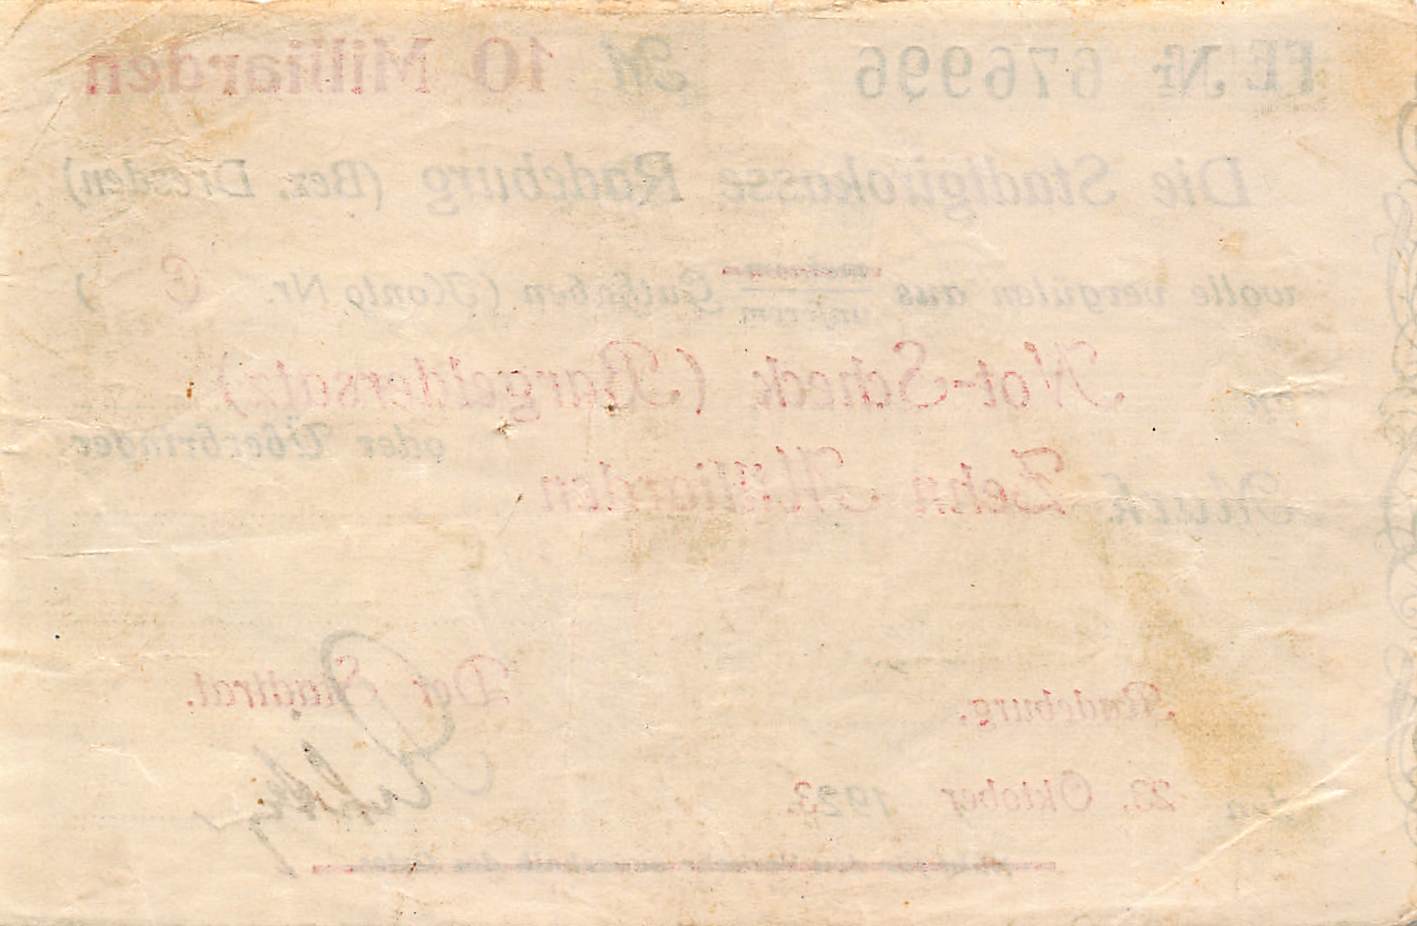 FE № 676996 ℳ 10 Milliarden
Die Stadtgirokasse Radeburg (Bez. Dresden)
wolle vergüten aus meinem unserem Guthaben (Konto Nr. C )
an Not-Scheck (Bargeldersatz)
oder Überbringer
Mark Zehn Milliarden
Radeburg, Der Stadtrat.
den 23. Oktober 1923.